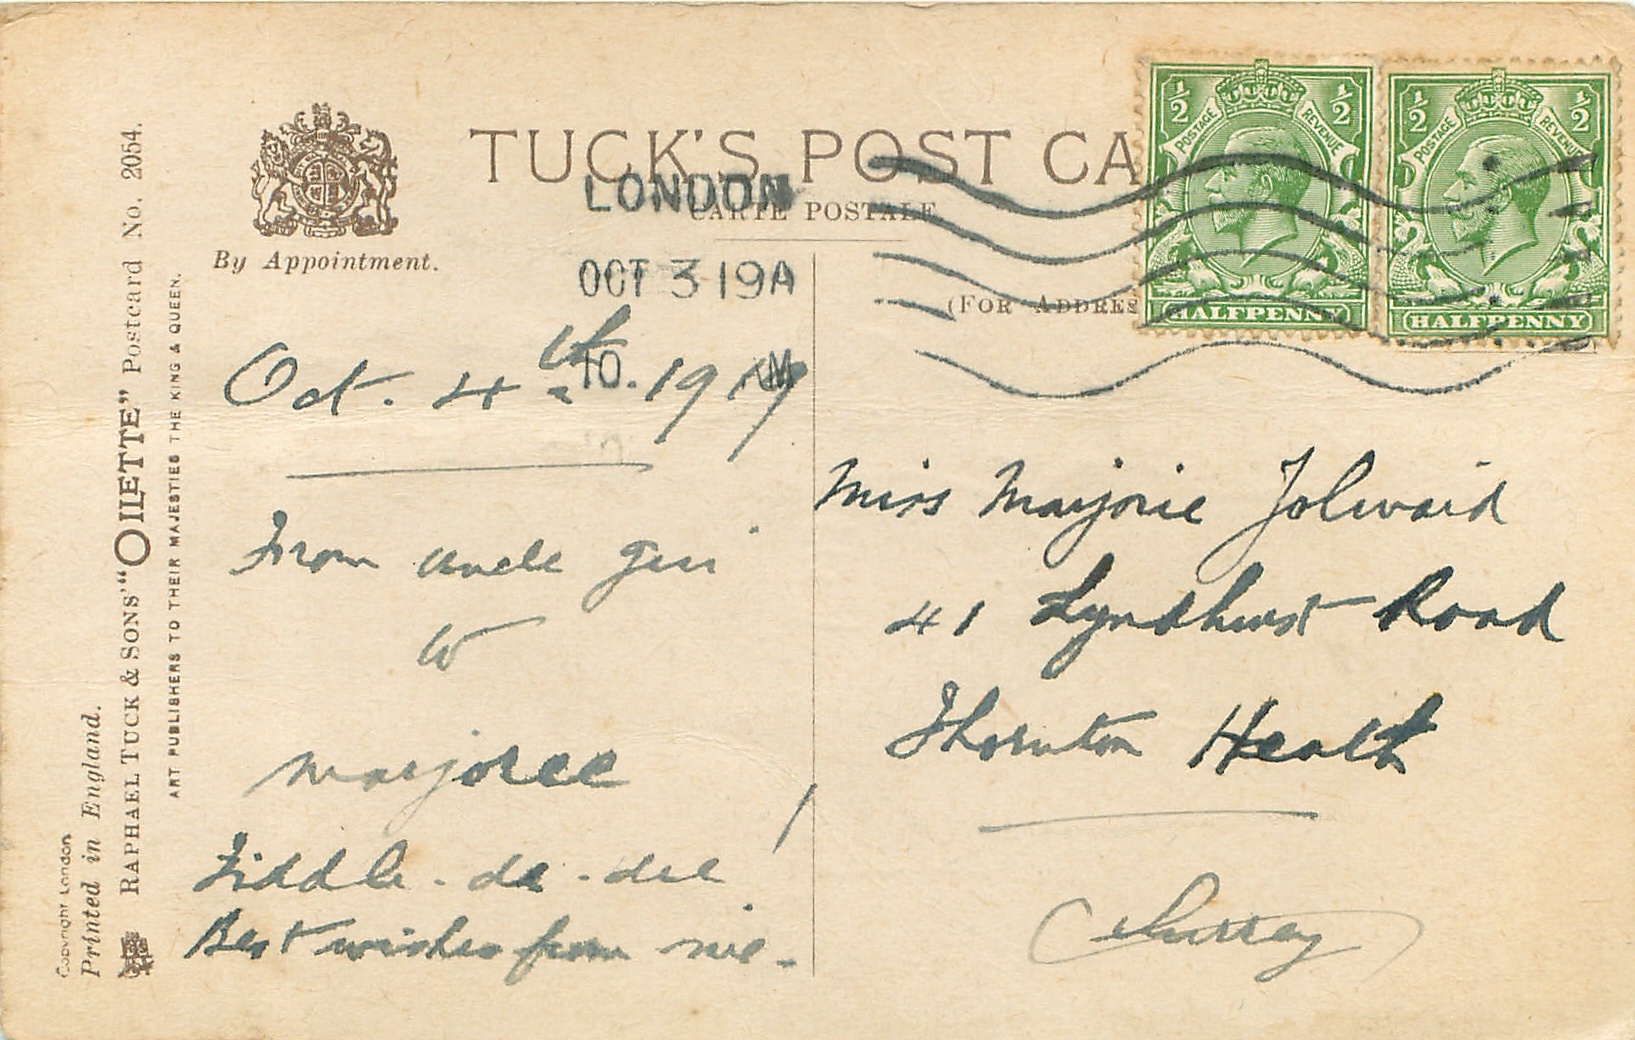 TUCK'S POST CA
CARTE POSTALE
(FOR ADDRES
By Appointment.
LONDON
OCT 3 19A
10. AM
½ ½
POSTAGE REVENUE
HALFPENNY
½ ½
POSTAGE REVENUE
HALFPENNY
Copyright London
Printed in England.
RAPHAEL TUCK & SONS' "OILETTE" Postcard No. 2054.
ART PUBLISHERS TO THEIR MAJESTIES THE KING & QUEEN.
Oct. 4th. 1919
From Uncle
to
Marjoree
Fiddle-de-dee!
Best wishes from me.
Miss Marjorie
41 Lyndhurst Road
Thornton Heath
(Surrey)